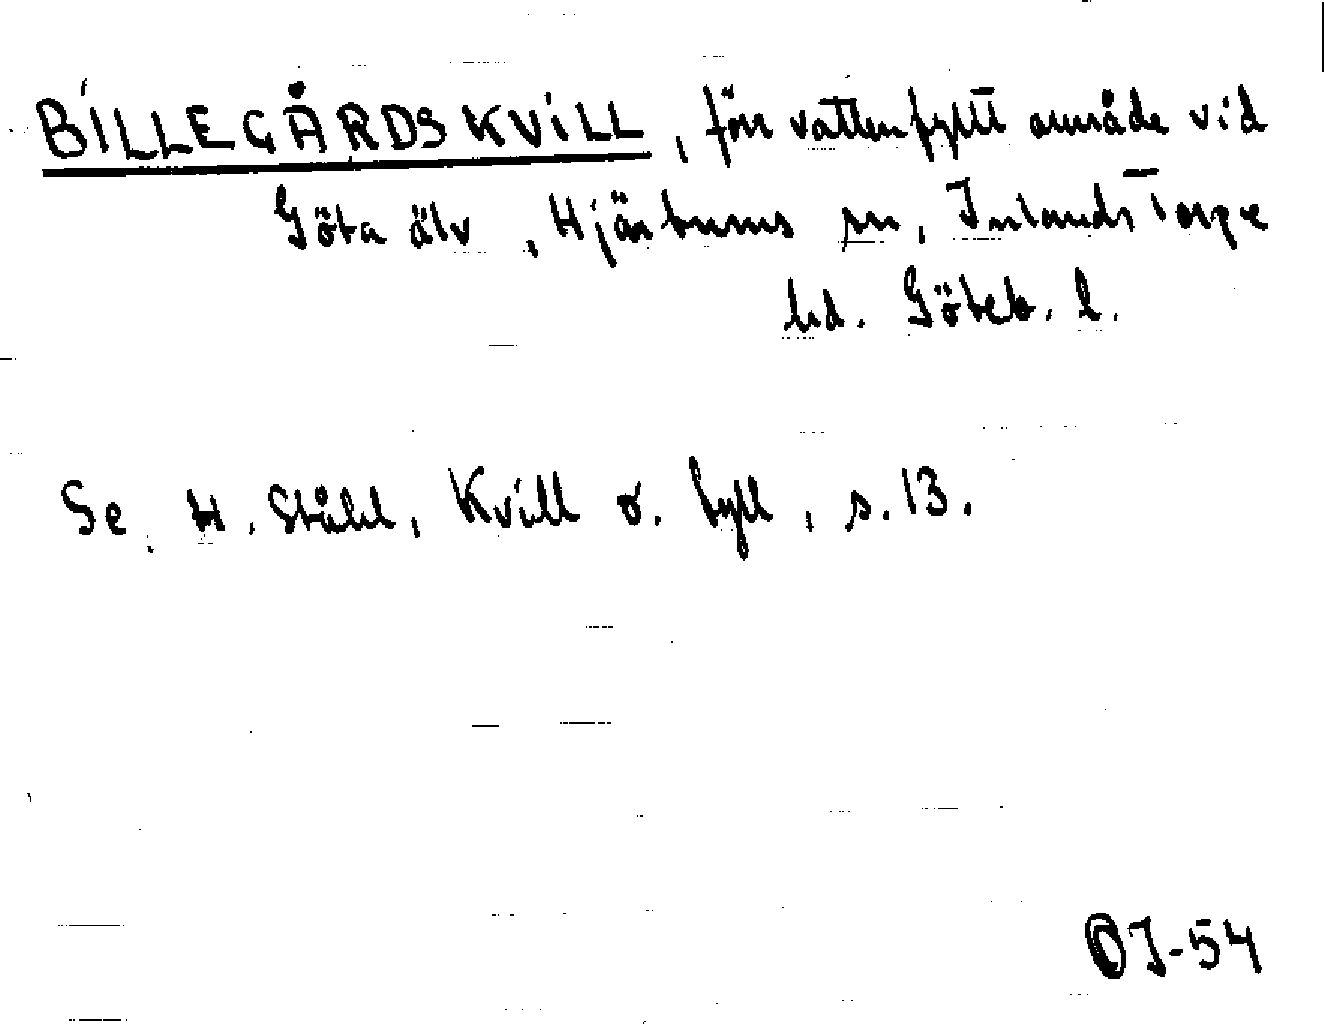 BILLEGÅRDSKVILL, förr vattenfyllt område vid
Göta älv, Hjärtums sn, Inlands Torpe
hd. Göteb. l.
Se H. Ståhl, Kvill o. tyll, s. 13.
OJ-54